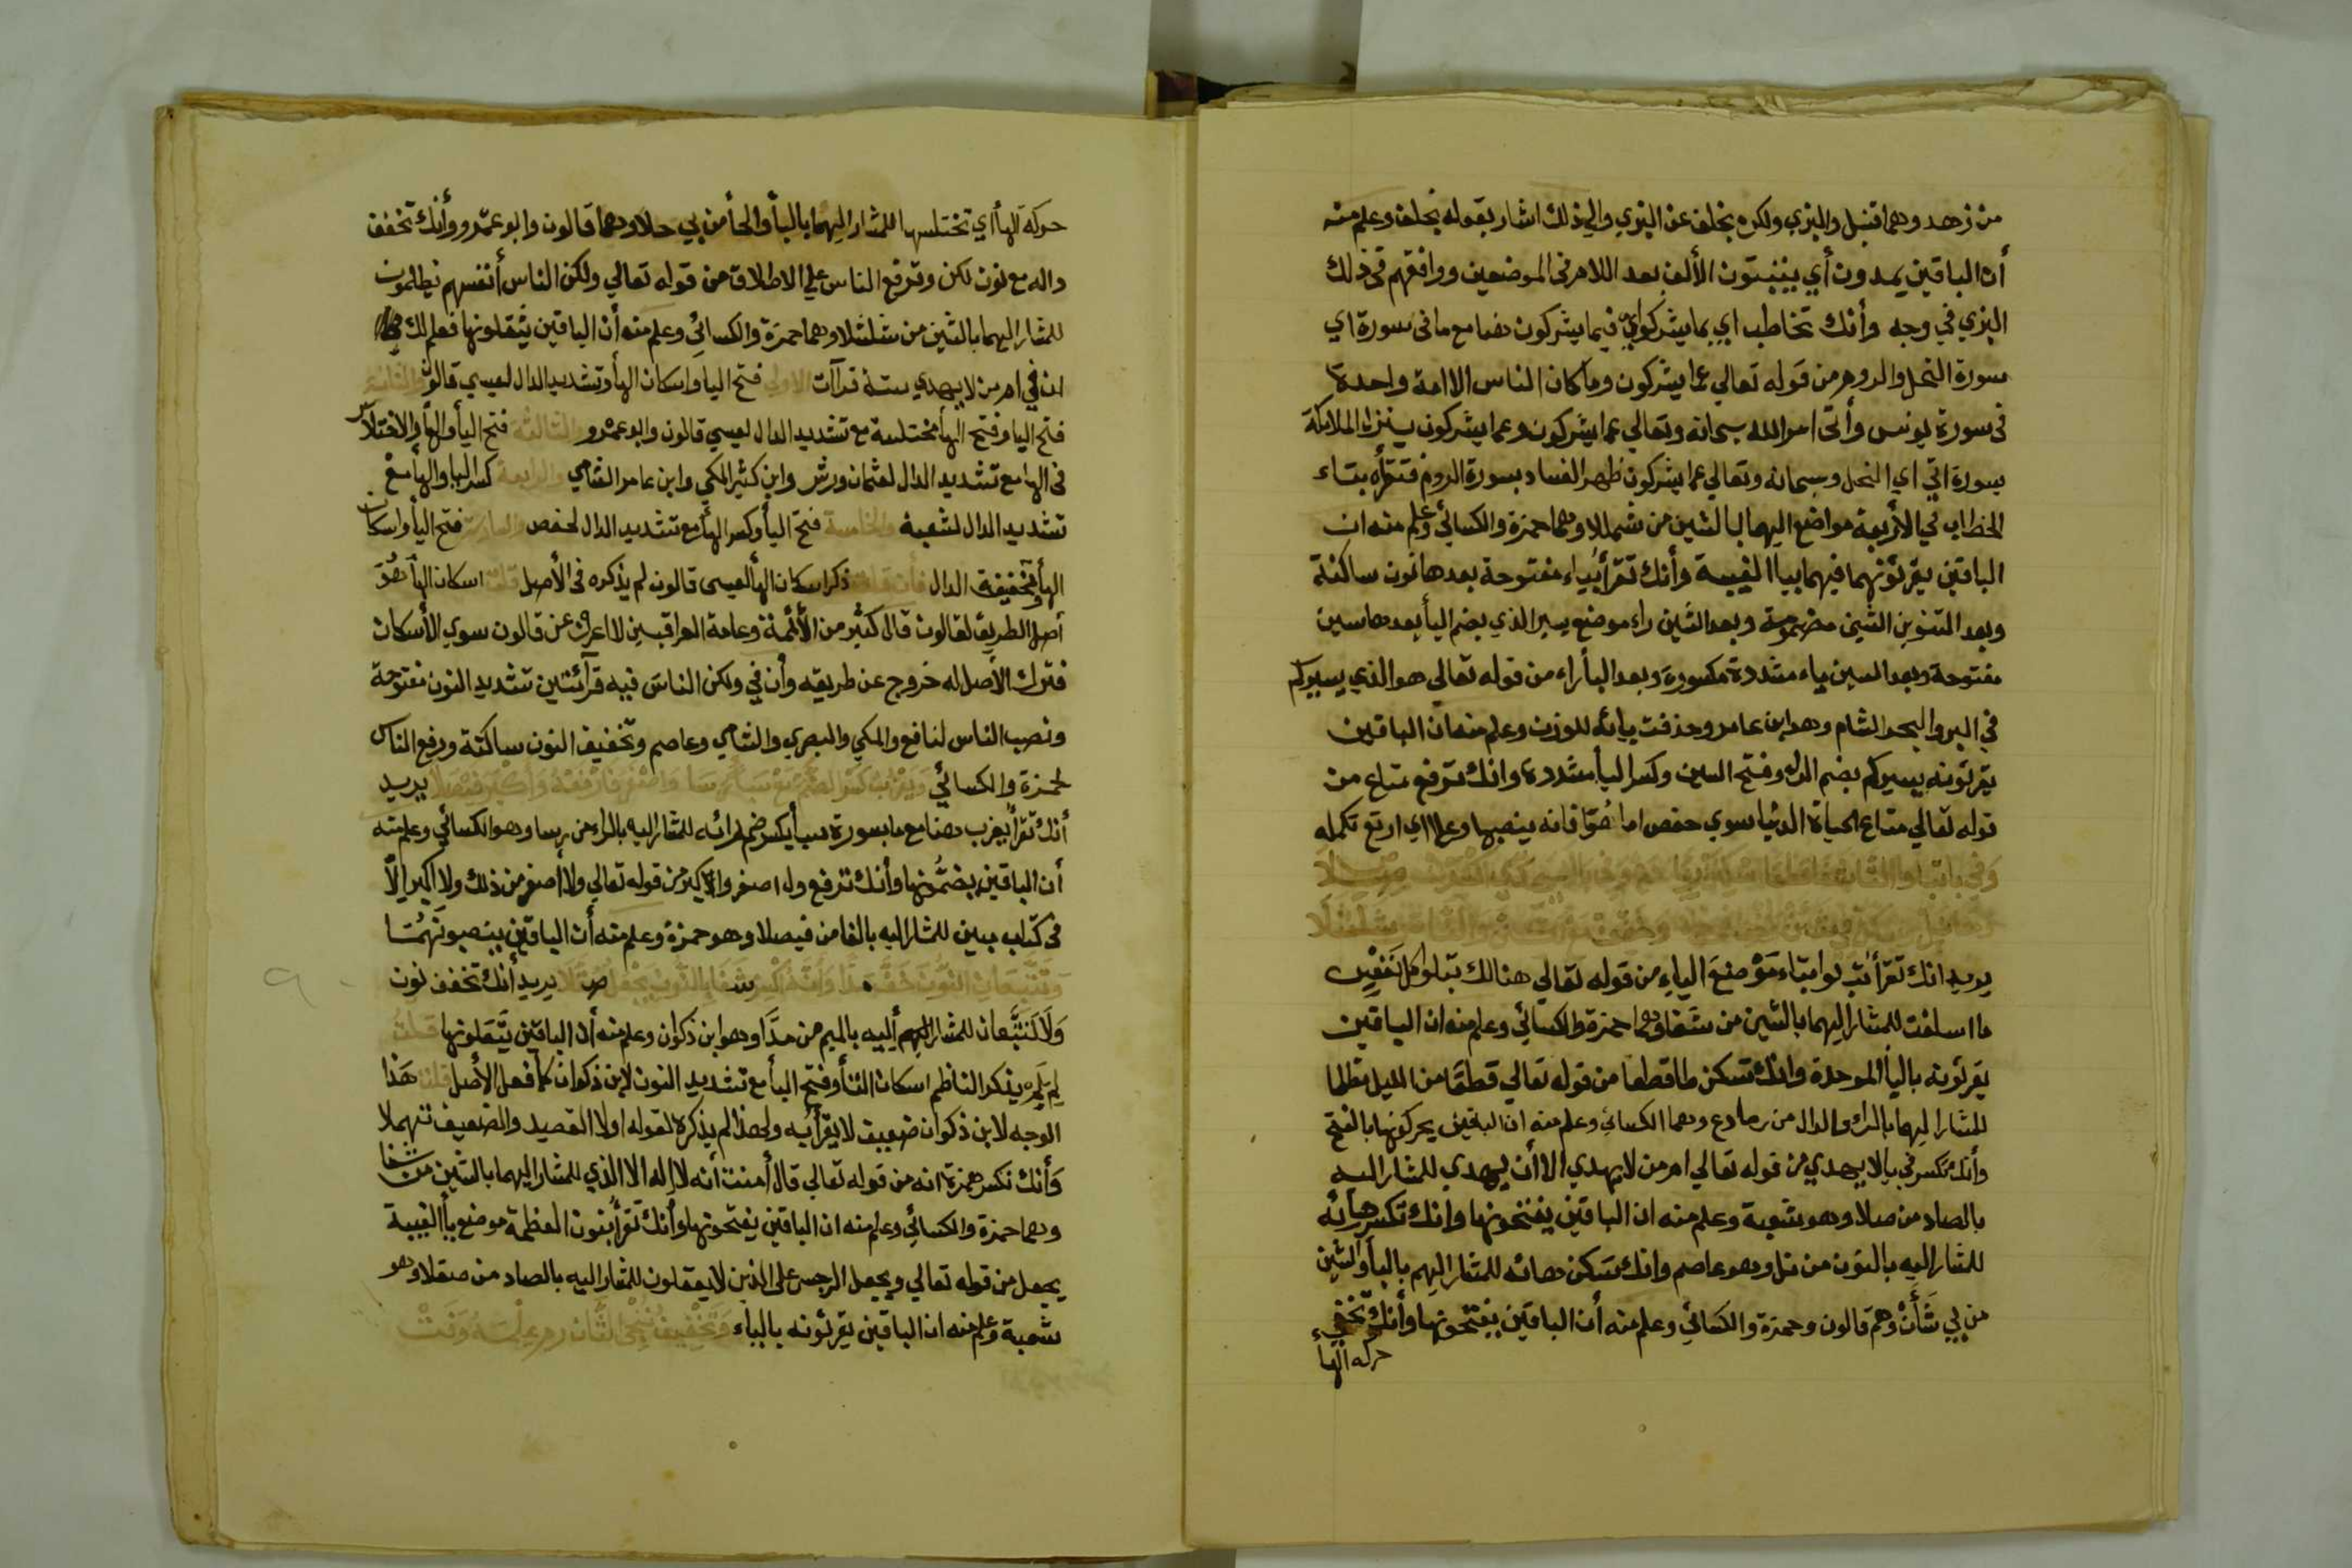 من زهد وهما قنبل والبزي ولكن بخلف عن البزي والي ذلك اشار بقوله بخلف وعلم منه
أن الباقين يمدون أي يثبتون الألف بعد اللام في الموضعين ووافقهم في ذلك
البزي في وجه وأنك تخاطب اي بما يشركوا اي فيما يشركون هنا مع ما في سورة اي
سورة النحل والروم من قوله تعالي عما يشركون وما كان الناس الا امة واحدة
في سورة يونس وأتى امر الله سبحانه وتعالي عما يشركون وعما يشركون ينزل الملائكة
بسورة اتي اي النحل وسبحانه وتعالي عما يشركون ظهر الفساد بسورة الروم فتقرأه بتاء
الخطاب في الأربعة مواضع اليهما بالشين من شمللا وهما حمزة والكسائي وعلم منه ان
الباقين يقرئونهما فيهما بيا الغيبة وأنك تقرأ بياء مفتوحة بعدها نون ساكنة
وبعد التنوين الشين مضمومة وبعد الشين راء موضع يسير الذي بضم اليأ بعدها سين
مفتوحة وبعد السين ياء مشددة مكسورة وبعد اليأ راء من قوله تعالي هو الذي يسيركم
في البر والبحر الشام وهو ابن عامر وحذفت يائه للوزن وعلم منه ان الباقين
يقرئونه يسيركم بضم الياء وفتح السين وكسر اليأ مشددة وانك ترفع متاع من
قوله تعالي متاع الحياة الدنيا سوي حفص اما هو فانه ينصبها وعلا اي ارتفع تكمله
يريد انك تقرأ تتلوا بتاء موضع الياء من قوله تعالي هنالك تبلوا كل نفس
ما اسلفت للمشار اليهما بالشين من شفا وهما حمزة والكسائي وعلم منه ان الباقين
يقرئونه باليأ الموحدة وانك تسكن طا قطعا من قوله تعالي قطعا من الليل مظلما
للمشار اليهما بالراء والدال من رما دع وهما الكسائي وعلم منه ان البقين يحركونها بالفتح
وأنك تكسر في يا لا يهدي من قوله تعالي امر من لا يهدي الا أن يهدي للمشار اليه
بالصاد من صلا وهو شعبة وعلم منه ان الباقين يفتحونها وانك تكسر هائه
للمشار اليه بالنون من نل وهو عاصم وانك تسكن هائه للمشار اليهم بالبأ والشين
من بي شأن وهم قالون وحمزة والكسائي وعلم منه أن الباقين يفتحونها وأنك تخفي
حركه الهأ
حركة الهأ اي تختلسها للمشار اليهما بالبأ والحأ من بي حلا وهما قالون وابو عمرو وأنك تخفف
واله مع نون لكن وترفع الناس علي الاطلاق من قوله تعالي ولكن الناس أنفسهم يظلمون
للمشار اليهما بالشين من شلشلا وهما حمزة والكسائي وعلم منه أن الباقين يثقلونها فعلم لك
ان في امر من لا يهدي ستة قرآآت الاولي فتح اليا واسكان الهأ وتشديد الدال لعيسي قالون والثانية
فتح اليا وفتح الهأ مختلسة مع تشديد الدال لعيسي قالون وابو عمرو والثالثه فتح اليأ والهأ والاختلاس
في الها مع تشديد الدال لعثمان ورش وابن كثير المكي وابن عامر الشامي والرابعة كسر اليا والهأ مع
تشديد الدال لشعبة والخامسة فتح اليأ وكسر الهأ مع تشديد الدال لحفص والسادسة فتح اليأ واسكان
الهأ وتخفيفة الدال فأن قلت ذكر اسكان الهأ لعيسي قالون لم يذكره في الأصل قلت اسكان الهأ هو
أصل الطريق لقالون قال كثير من الأئمة وعامة العراقيين لا اعرف عن قالون سوي الأسكان
فترك الأصل له خروج عن طريقه وأن في ولكن الناس فيه قرآئتين تشديد النون مفتوحة
ونصب الناس لنافع والمكي والبصري والشامي وعاصم وتخفيف النون ساكنة ورفع الناس
لحمزة والكسائي ويعزب كسر الضم مع سبأ رسا واصغر فارفعه وأكبر فيصلا يريد
أنك تقرأ يعزب هنا مع ما بسورة سبأ يكسر ضم رائه للمشار اليه بالراء من رسا وهو الكسائي وعلم منه
أن الباقين يضمونها وأنك ترفع ولا اصغر والأكبر من قوله تعالي ولا أصغر من ذلك ولا اكبر الا
في كتاب مبين للمشار اليه بالفا من فيصلا وهو حمزة وعلم منه أن الباقين ينصبونهما
يريد أنك تخفف نون
ولا تتبعان للمشار اليهم أليه بالميم من مدا وهو ابن ذكوان وعلم منه أن الباقين يثقلونها قلت
لم لم يذكر الناظم اسكان التأ وفتح البأ مع تشديد النون لابن ذكوان كما فعل الأصل قلت هذا
الوجه لابن ذكوان ضعيف لا يقرأ به ولهذا لم يذكره لقوله اولا القصيد والضعيف تهملا
وأنك تكسر همزة انه من قوله تعالي قال أمنت أنه لا اله الا الذي للمشار اليهما بالشين من شفا
وهما حمزة والكسائي وعلم منه ان الباقين يفتحونها وأنك تقرأ بنون العظمة موضع يأ الغيبة
يجعل من قوله تعالي ويجعل الرجس على الذين لا يعقلون للمشار اليه بالصاد من صقلا وهو
شعبة وعلم منه ان الباقين يقرئونه بالياء